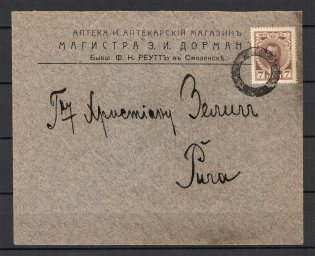 АПТЕКА и АПТЕКАРСКІЙ МАГАЗИНЪ
МАГИСТРА Э. И. ДОРМАНЪ
Бывш. Ф. Н. РЕУТТЪ въ Смоленскѣ.
7 7
Христіану Зелигг
Рига